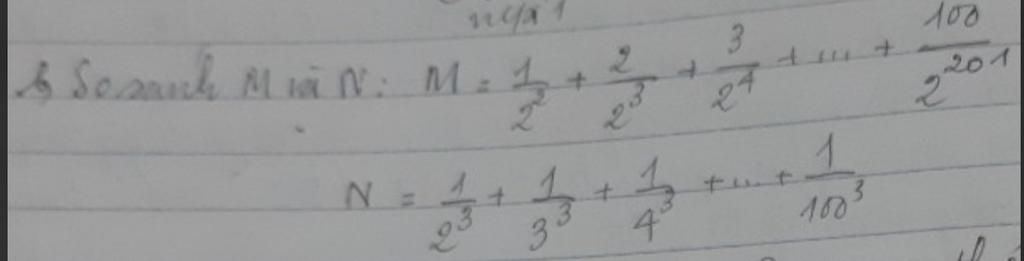 So sánh M và N: M = 1/2² + 2/2³ + 3/2⁴ + ... + 100/2²⁰¹
N = 1/2³ + 1/3³ + 1/4³ + ... + 1/100³